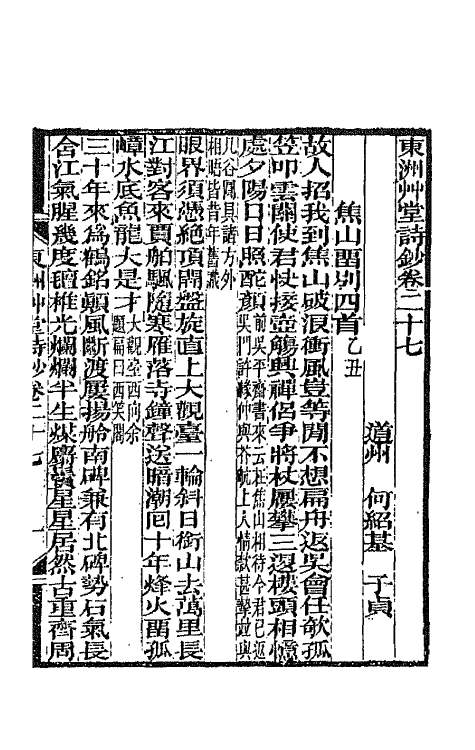 東洲艸堂詩鈔卷二十七
道州 何紹基 子貞
焦山畱別四首乙丑
故人招我到焦山破浪衝風豈等閒不想扁舟返吳會任欹孤
笠叩雲關使君快接壺觴興禪侶爭將杖屨攀三退樓頭相憶
處夕陽日日照酡顏
前吳平齋書來云在焦山相待今君已返
吳門許緣仲與芥航上人情款甚摯竝與
几谷圓具諸方外
相晤皆昔年舊識
眼界須憑絕頂開盤旋直上大觀臺一輪斜日銜山去萬里長
江對客來賈舶颿隨寒雁落寺鐘聲送暗潮回十年烽火畱孤
嶂水底魚龍大是才
大觀臺西向余
題扁曰西笑閣
三十年來爲鶴銘顛風斷渡屢揚舲南碑兼有北碑勢石氣長
含江氣腥幾度氊椎光爛爛半生煤麝鬢星星居然古重齊周
東洲艸堂詩鈔卷二十七 一